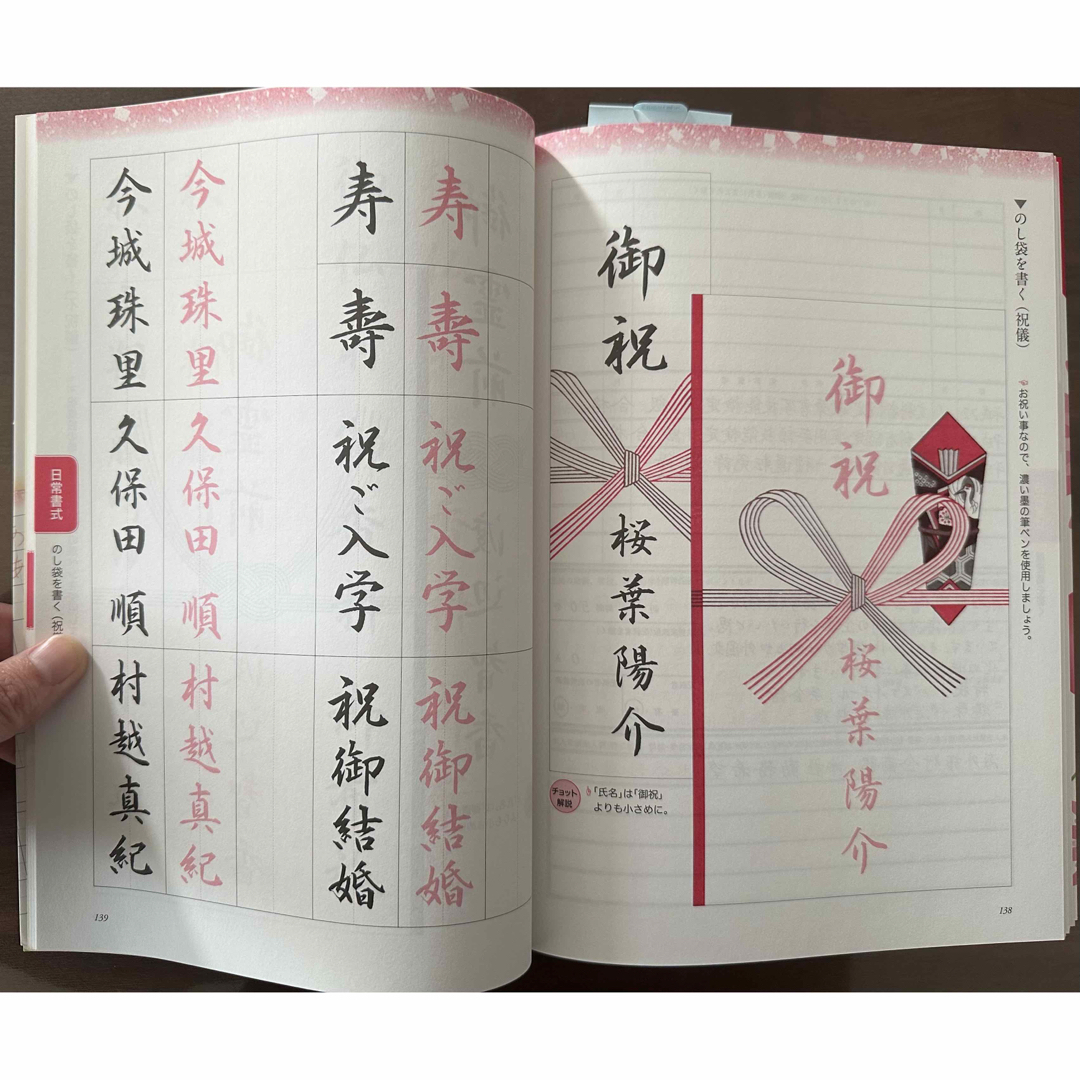 ▼のし袋を書く（祝儀）
お祝い事なので、濃い墨の筆ペンを使用しましょう。
御祝
桜葉陽介
御祝
桜葉陽介
チョット解説
「氏名」は「御祝」
よりも小さめに。
138
寿
壽
祝ご入学
祝御結婚
寿
壽
祝ご入学
祝御結婚
今城珠里
久保田順
村越真紀
今城珠里
久保田順
村越真紀
日常書式
のし袋を書く（祝
139